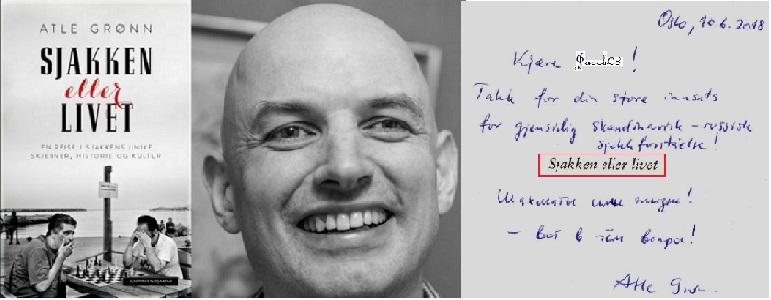 ATLE GRØNN
SJAKKEN
eller
LIVET
EN REISE I SJAKKENS UNIKE
SKJEBNER, HISTORIE OG KULTUR
CAPPELEN DAMM
Oslo, 10.6.2018
Kjære !
Takk for din store innsats
for gjensidig skandinavisk-russisk
sjakkforståelse!
Sjakken eller livet
Шахматы или жизнь!
– вот в чём вопрос!
Atle Grønn